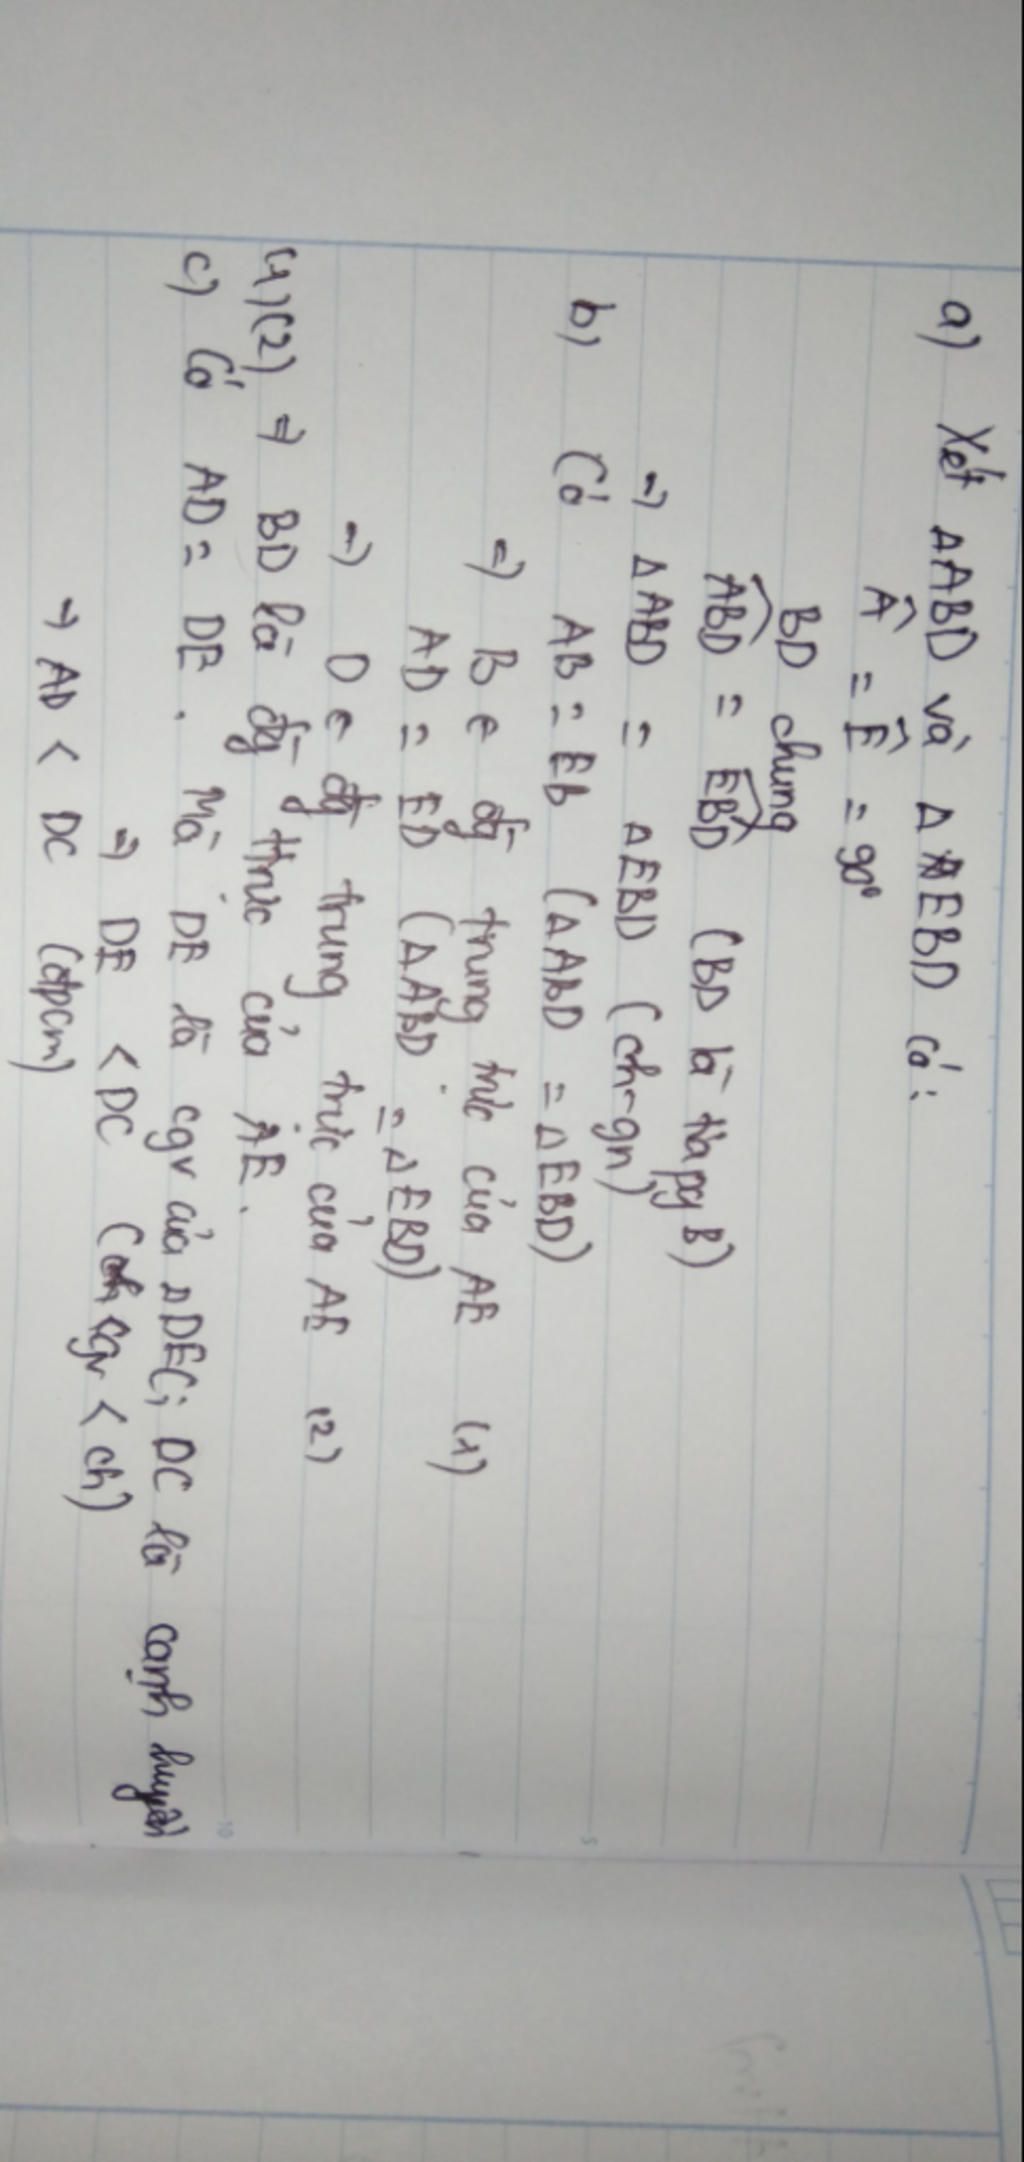 a) Xét ΔABD và ΔEBD có:
Â = Ê = 90°
BD chung
ABD = EBD (BD là tia pg B)
=) ΔABD = ΔEBD (ch-gn)
b) Có AB = EB (ΔABD = ΔEBD)
=) B ∈ đg trung trực của AE (1)
AD = ED (ΔABD = ΔEBD)
=) D ∈ đg trung trực của AE (2)
(1)(2) => BD là đg ttrực của AE.
c) Có AD = DE. Mà DE là cgv của ΔDEC; DC là cạnh huyền
=) DE < DC (cgv < ch)
=> AD < DC (đpcm)
5
10